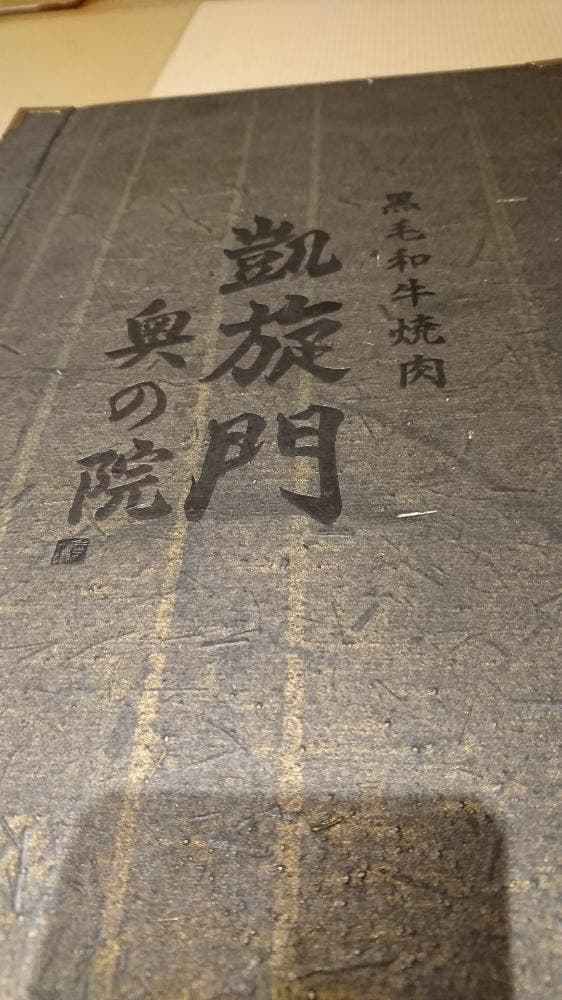 黒毛和牛焼肉
凱旋門
奥の院